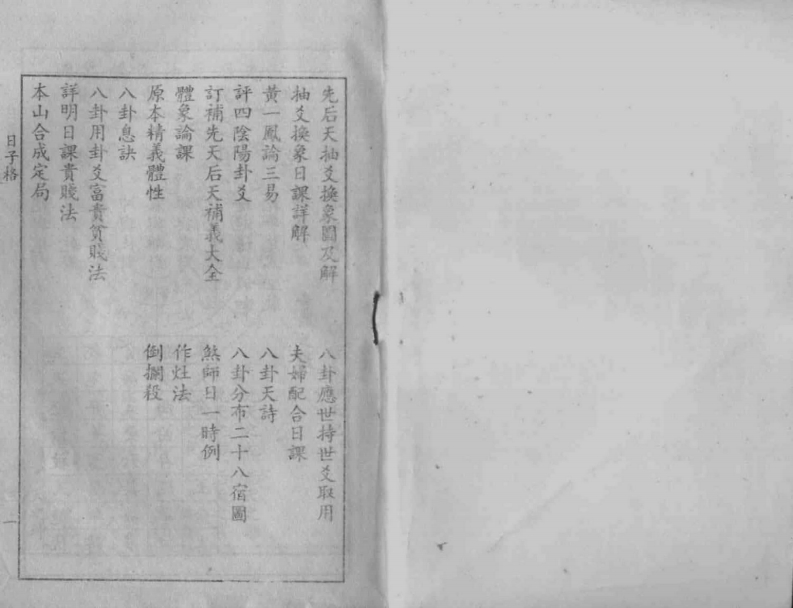 先后天抽爻換象圖及解
八卦應世持世爻取用
抽爻換象日課詳解
夫婦配合日課
黃一鳳論三易
八卦天詩
評四陰陽卦爻
八卦分布二十八宿圖
訂補先天后天補義大全
煞師日一時例
體象論課
作灶法
原本精義體性
倒攔殺
八卦息訣
八卦用卦爻富貴貧賎法
詳明日課貴賎法
本山合成定局
日子格
一